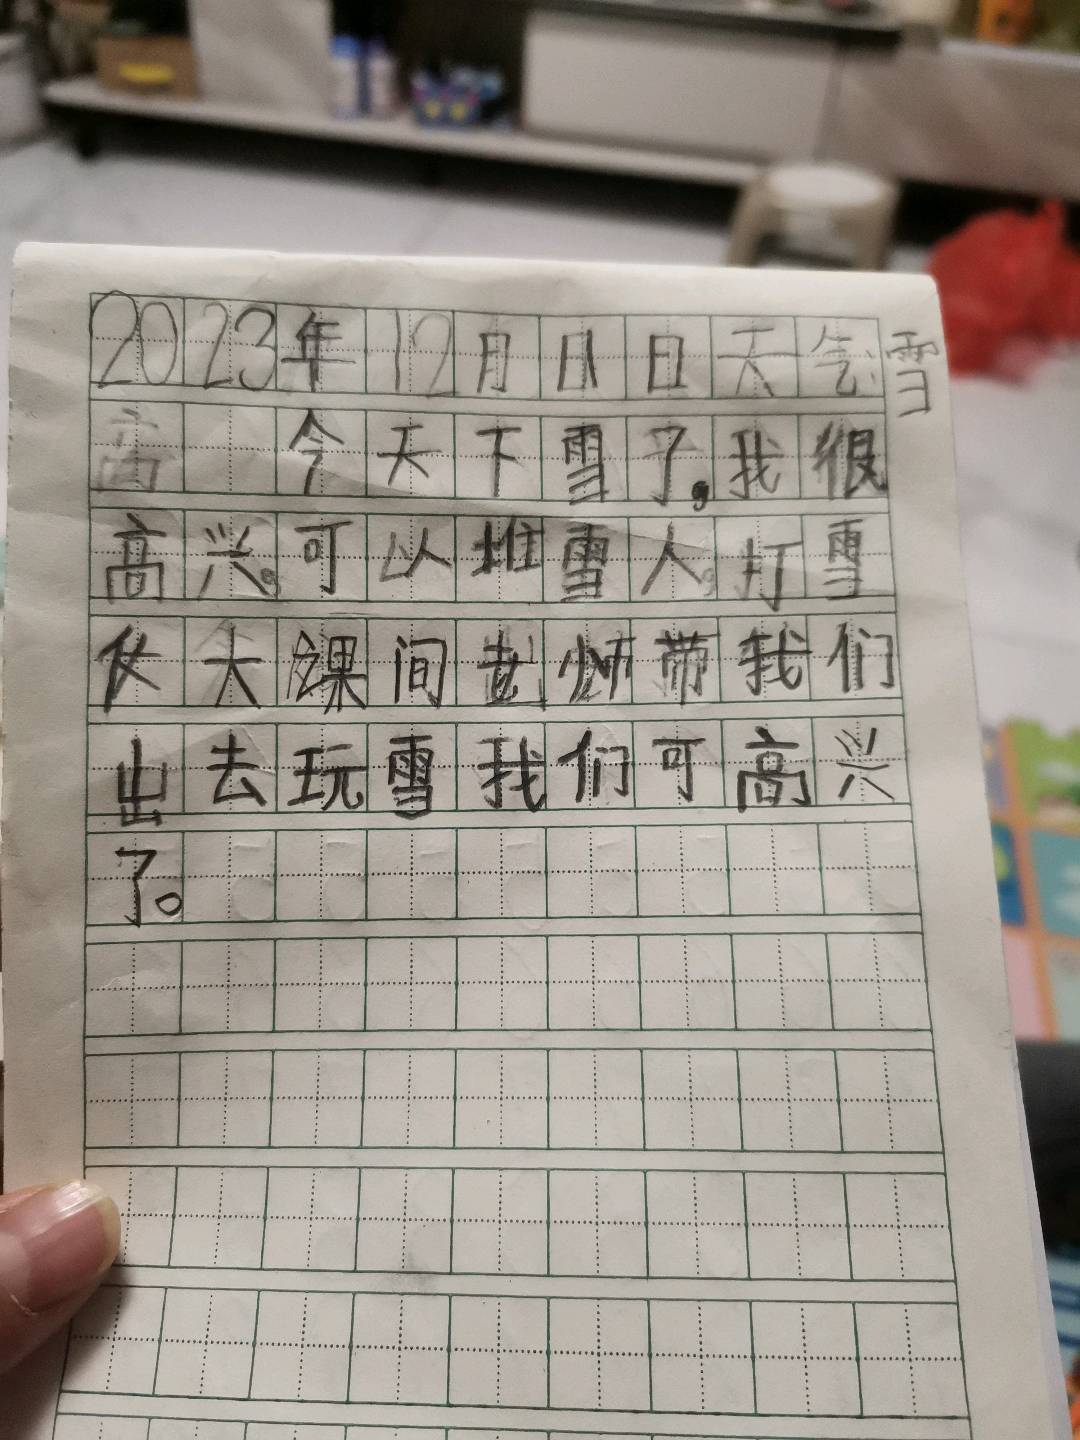 2023年12月11日天气雪
今天下雪了,我很
高兴,可以堆雪人,打雪
仗大课间老师带我们
出去玩雪我们可高兴
了。